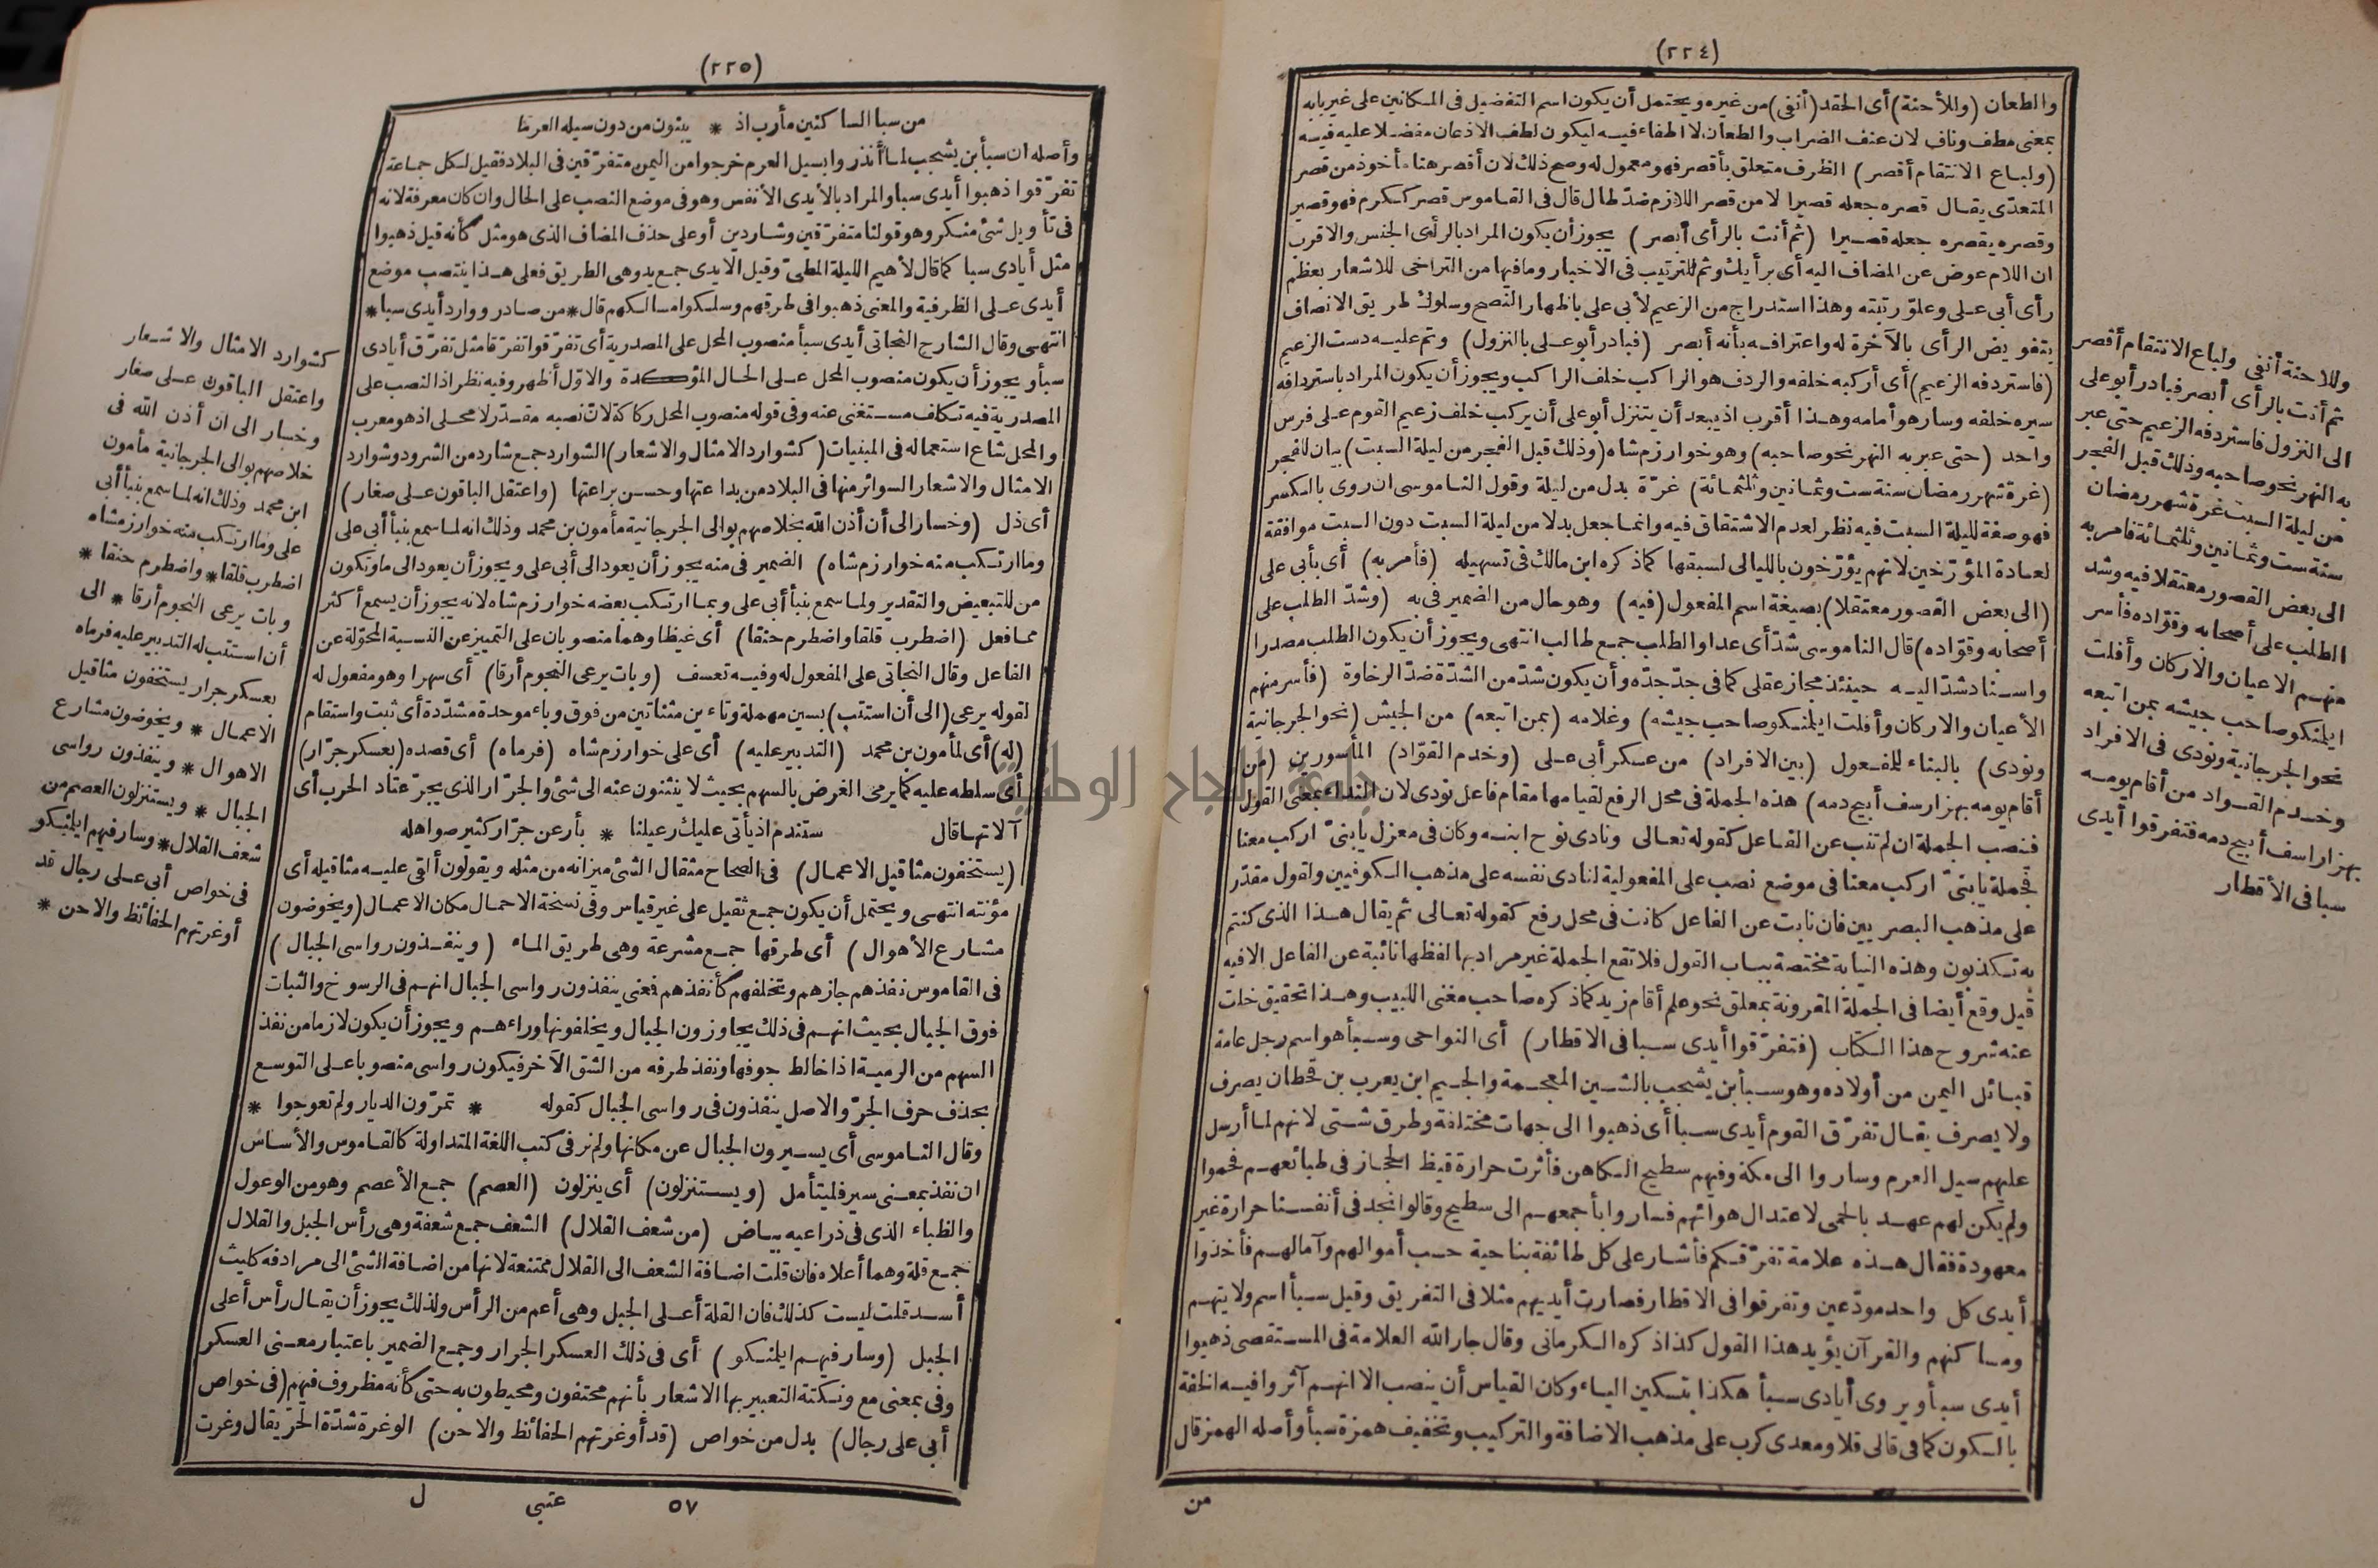 (٢٢٤)
والطعان (وللأحنة) أى الحقد (أنفى) من غيره ويحتمل أن يكون اسم التفضيل فى المكانين على غير بابه
بمعنى مطف وناف لان عنف الضراب والطعان لا اطفاء فيه ليكون لطف الاذعان مفضلا عليه فيه
(ولباع الانتقام أقصر) الظرف متعلق بأقصر فهو معمول له وصح ذلك لان أقصر هنا مأخوذ من قصر
المتعدّى يقال قصره جعله قصيرا لا من قصر اللازم ضدّ طال قال فى القاموس قصر ككرم فهو قصير
وقصره يقصره جعله قصيرا (ثم أنت بالرأى أبصر) يجوز أن يكون المراد بالرأى الجنس والاقرب
ان اللام عوض عن المضاف اليه أى برأيك وثم للترتيب فى الاخبار وما فيها من التراخى للاشعار بعظم
رأى أبى على وعلوّ رتبته وهذا استدراج من الزعيم لأبى على باظهار النصح وسلوك طريق الانصاف
بتفويض الرأى بالآخرة له واعترافه بأنه أبصر (فبادر أبو على بالنزول) وتم عليه دست الزعيم
(فاستردفه الزعيم) أى أركبه خلفه والردف هو الراكب خلف الراكب ويجوز أن يكون المراد باستردافه
سيره خلفه وسار هو أمامه وهذا أقرب اذ يبعد أن يتنزل أبو على أن يركب خلف زعيم القوم على فرس
واحد (حتى عبر به النهر نحو صاحبه) وهو خوارزم شاه (وذلك قبل الفجر من ليلة السبت) بيان للفجر
(غرة شهر رمضان سنة ست وثمانين وثلثمائة) غرّة بدل من ليلة وقول الناموسى ان روى بالكسر
فهو صفة لليلة السبت فيه نظر لعدم الاشتقاق فيه وانما جعل بدلا من ليلة السبت دون السبت موافقة
لعادة المؤرّخين لانهم يؤرّخون بالليالى لسبقها كما ذكره ابن مالك فى تسهيله (فأمر به) أى بأبى على
(الى بعض القصور معتقلا) بصيغة اسم المفعول (فيه) وهو حال من الضمير فى به (وشدّ الطلب على
أصحابه وقوّاده) قال الناموسى شدّ أى عدا والطلب جمع طالب انتهى ويجوز أن يكون الطلب مصدرا
واسناد شدّ اليه حينئذ مجاز عقلى كما فى جدّ جدّه وأن يكون شدّ من الشدّة ضدّ الرخاوة (فأسر منهم
الأعيان والاركان وأفلت ايلمنكو صاحب جيشه) وغلامه (بمن اتبعه) من الجيش (نحو الجرجانية
ونودى) بالبناء للمفعول (بين الافراد) من عسكر أبى على (وخدم القوّاد) المأسورين (من
أقام يومه بهزار سف أبيح دمه) هذه الجملة فى محل الرفع لقيامها مقام فاعل نودى لان النداء بمعنى القول
فنصب الجملة ان لم تنب عن الفاعل كقوله تعالى ونادى نوح ابنه وكان فى معزل يا بنىّ اركب معنا
فجملة يا بنىّ اركب معنا فى موضع نصب على المفعولية لنادى نفسه على مذهب الكوفيين ولقول مقدّر
على مذهب البصريين فان نابت عن الفاعل كانت فى محل رفع كقوله تعالى ثم يقال هذا الذى كنتم
به تكذبون وهذه النيابة مختصة بباب القول فلا تقع الجملة غير مراد بها لفظها نائبة عن الفاعل الا فيه
قيل وقع أيضا فى الجملة المقرونة بمعلق نحو علم أقام زيد كما ذكره صاحب مغنى اللبيب وهذا تحقيق خلت
عنه شروح هذا الكتاب (فتفرّقوا أيدى سبا فى الاقطار) أى النواحى وسبأ هو اسم رجل عامة
قبائل اليمن من أولاده وهو سبأ بن يشجب بالشين المعجمة والجيم ابن يعرب بن قحطان يصرف
ولا يصرف يقال تفرّق القوم أيدى سبا أى ذهبوا الى جهات مختلفة وطرق شتى لانهم لما أرسل
عليهم سيل العرم وساروا الى مكة وفيهم سطيح الكاهن فأثرت حرارة قيظ الحجاز فى طبائعهم فحموا
ولم يكن لهم عهد بالحمى لاعتدال هوائهم فساروا بأجمعهم الى سطيح وقالوا نجد فى أنفسنا حرارة غير
معهودة فقال هذه علامة تفرّقكم فأشار على كل طائفة بناحية حسب أموالهم وآمالهم فأخذوا
أيدى كل واحد مودّعين وتفرقوا فى الاقطار فصارت أيديهم مثلا فى التفريق وقيل سبأ اسم ولايتهم
ومساكنهم والقرآن يؤيد هذا القول كذا ذكره الكرمانى وقال جار الله العلامة فى المستقصى ذهبوا
أيدى سبأ ويروى أيادى سبأ هكذا بتسكين الياء وكان القياس أن ينصب الا انهم آثروا فيه الخفة
بالسكون كما فى قالى قلا ومعدى كرب على مذهب الاضافة والتركيب وتخفيف همزة سبأ وأصله الهمز قال
من
وللاحنة أنفى ولباع الانتقام أقصر
ثم أنت بالرأى أبصر فبادر أبو على
الى النزول فاستردفه الزعيم حتى عبر
به النهر نحو صاحبه وذلك قبل الفجر
من ليلة السبت غرة شهر رمضان
سنة ست وثمانين وثلثمائة فامر به
الى بعض القصور معتقلا فيه وشد
الطلب على أصحابه وقوّاده فأسر
منهم الاعيان والاركان وأفلت
ايلمنكو صاحب جيشه بمن اتبعه
نحو الجرجانية ونودى فى الافراد
وخدم القواد من أقام يومه
بهزار اسف أبيح دمه فتفرقوا أيدى
سبا فى الأقطار
(٢٢٥)
من سبا الساكنين مأرب اذ * يبنون من دون سيله العرما
وأصله ان سبأ بن يشجب لما أنذروا بسيل العرم خرجوا من اليمن متفرّقين فى البلاد فقيل لكل جماعة
تفرّقوا ذهبوا أيدى سبا والمراد بالأيدى الأنفس وهو فى موضع النصب على الحال وان كان معرفة لانه
فى تأويل شئ منكر وهو قولنا متفرّقين وشاردين أو على حذف المضاف الذى هو مثل كأنه قيل ذهبوا
مثل أيادى سبا كما قال لأهيم الليلة المطىّ وقيل الايدى جمع يد وهى الطريق فعلى هذا ينتصب موضع
أيدى على الظرفية والمعنى ذهبوا فى طرقهم وسلكوا مسالكهم قال * من صادر ووارد أيدى سبا *
انتهى وقال الشارح النجاتى أيدى سبأ منصوب المحل على المصدرية أى تفرّقوا تفرّقا مثل تفرّق أيادى
سبأ ويجوز أن يكون منصوب المحل على الحال المؤكدة والاوّل أظهر وفيه نظر اذ النصب على
المصدرية فيه تكلف مستغنى عنه وفى قوله منصوب المحل ركاكة لان نصبه مقدّر لا محلى اذ هو معرب
والمحل شاع استعماله فى المبنيات (كشوارد الامثال والاشعار) الشوارد جمع شارد من الشرود وشوارد
الامثال والاشعار السوائر منها فى البلاد من بداعتها وحسن براعتها (واعتقل الباقون على صغار)
أى ذل (وخسار الى أن أذن الله بخلاصهم بوالى الجرجانية مأمون بن محمد وذلك انه لما سمع بنبأ أبى على
وما ارتكب منه خوارزم شاه) الضمير فى منه يجوز أن يعود الى أبى على ويجوز أن يعود الى ما وتكون
من للتبعيض والتقدير ولما سمع بنبأ أبى على وبما ارتكب بعضه خوارزم شاه لانه يجوز أن يسمع أكثر
مما فعل (اضطرب قلقا واضطرم حنقا) أى غيظا وهما منصوبان على التمييز عن النسبة المحوّلة عن
الفاعل وقال النجاتى على المفعول له وفيه تعسف (وبات يرعى النجوم أرقا) أى سهرا وهو مفعول له
لقوله يرعى (الى أن استتب) بسين مهملة وتاءين مثناتين من فوق وباء موحدة مشدّدة أى ثبت واستقام
(له) أى لمأمون بن محمد (التدبير عليه) أى على خوارزم شاه (فرماه) أى قصده (بعسكر جرّار)
أى سلطه عليه كما يرمى الغرض بالسهم بحيث لا ينثنون عنه الى شئ والجرّار الذى يجرّ عتاد الحرب أى
آلاتها قال ستندم اذ يأتى عليك رعيلنا * بأرعن جرّار كثير صواهله
(يستخفون مثاقيل الاعمال) فى الصحاح مثقال الشئ ميزانه من مثله ويقولون ألقى عليه مثاقيله أى
مؤنته انتهى ويحتمل أن يكون جمع ثقيل على غير قياس وفى نسخة الاحمال مكان الاعمال (ويخوضون
مشارع الأهوال) أى طرقها جمع مشرعة وهى طريق الماء (وينفذون رواسى الجبال)
فى القاموس نفذهم جازهم وتخلفهم كأنفذهم فعنى ينفذون رواسى الجبال انهم فى الرسوخ والثبات
فوق الجبال بحيث انهم فى ذلك يجاوزون الجبال ويخلفونها وراءهم ويجوز أن يكون لازما من نفذ
السهم من الرمية اذا خالط جوفها ونفذ طرفه من الشق الآخر فيكون رواسى منصوبا على التوسع
بحذف حرف الجرّ والاصل ينفذون فى رواسى الجبال كقوله * تمرّون الديار ولم تعوجوا *
وقال الناموسى أى يسيرون الجبال عن مكانها ولم نر فى كتب اللغة المتداولة كالقاموس والأساس
ان نفذ بمعنى سير فليتأمل (ويستنزلون) أى ينزلون (العصم) جمع الأعصم وهو من الوعول
والظباء الذى فى ذراعيه بياض (من شعف القلال) الشعف جمع شعفة وهى رأس الجبل والقلال
جمع قلة وهما أعلاه فان قلت اضافة الشعف الى القلال ممتنعة لانها من اضافة الشئ الى مرادفه كليث
أسد قلت ليست كذلك فان القلة أعلى الجبل وهى أعم من الرأس ولذلك يجوز أن يقال رأس أعلى
الجبل (وسار فيهم ايلمنكو) أى فى ذلك العسكر الجرار وجمع الضمير باعتبار معنى العسكر
وفى بمعنى مع ونكتة التعبير بها الاشعار بأنهم محتفون ومحيطون به حتى كأنه مظروف فيهم (فى خواص
أبى على رجال) بدل من خواص (قد أوغرتهم الحفائظ والاحن) الوغرة شدّة الحرّ يقال وغرت
٥٧ عتبى ل
كشوارد الامثال والاشعار
واعتقل الباقون على صغار
وخسار الى ان أذن الله فى
خلاصهم بوالى الجرجانية مأمون
ابن محمد وذلك انه لما سمع بنبأ أبى
على وما ارتكب منه خوارزمشاه
اضطرب قلقا * واضطرم حنقا *
وبات يرعى النجوم أرقا * الى
أن استتب له التدبير عليه فرماه
بعسكر جرار يستخفون مثاقيل
الاعمال * ويخوضون مشارع
الاهوال * وينفذون رواسى
الجبال * ويستنزلون العصم من
شعف القلال * وسار فيهم ايلمنكو
فى خواص أبى على رجال قد
أوغرتهم الحفائظ والاحن *
جامعة النجاح الوطنية